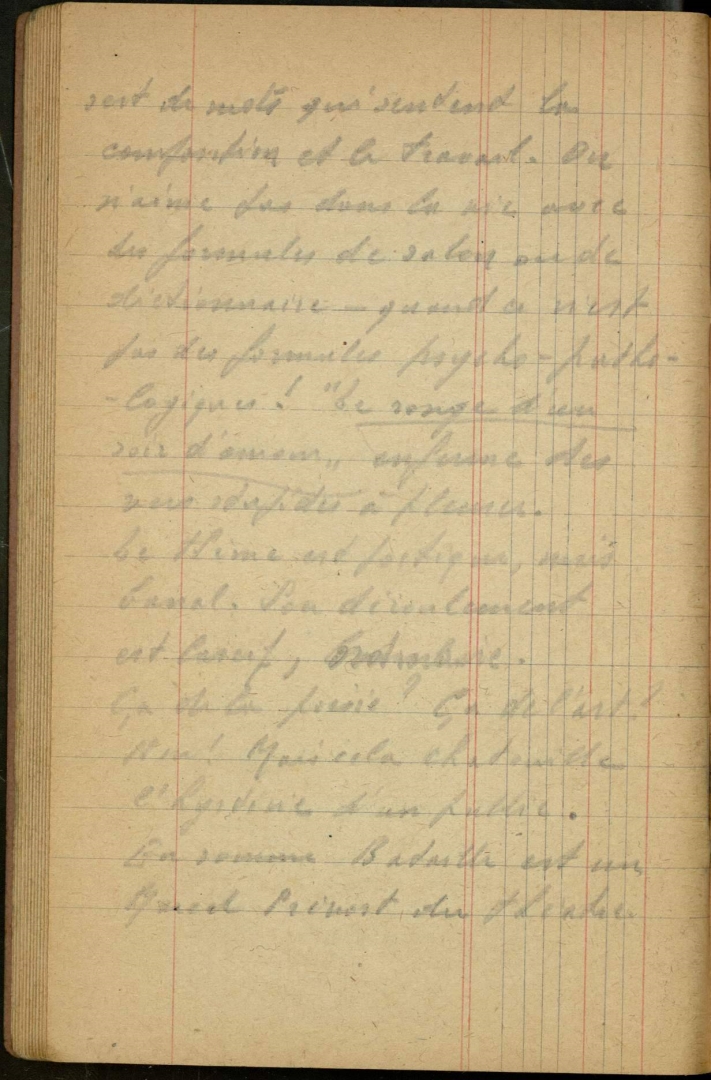 sert de mots qui sentent la
composition et le travail. On
n'aime pas dans la vie avec
des formules de salon ou de
dictionnaire — quand ce n'est
pas des formules psycho-patho-
-logiques! "Le songe d'un
soir d'amour" enferme des
vers stupides à pleurer.
Le thème est poétique, mais
banal. Son déroulement
est lascif,
Ça de la poésie? Ça de l'art?
Non! Mais cela chatouille
l'hystérie d'un public.
En somme Bataille est un
Marcel Prévost du théâtre